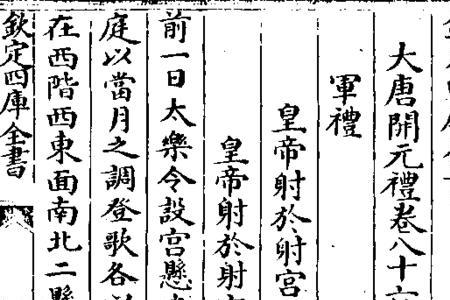 大唐開元禮卷八十六
軍禮
皇帝射於射宮
皇帝射於射
前一日太樂令設宮懸
庭以當月之調登歌各
在西階西東面南北二縣
欽定四庫全書